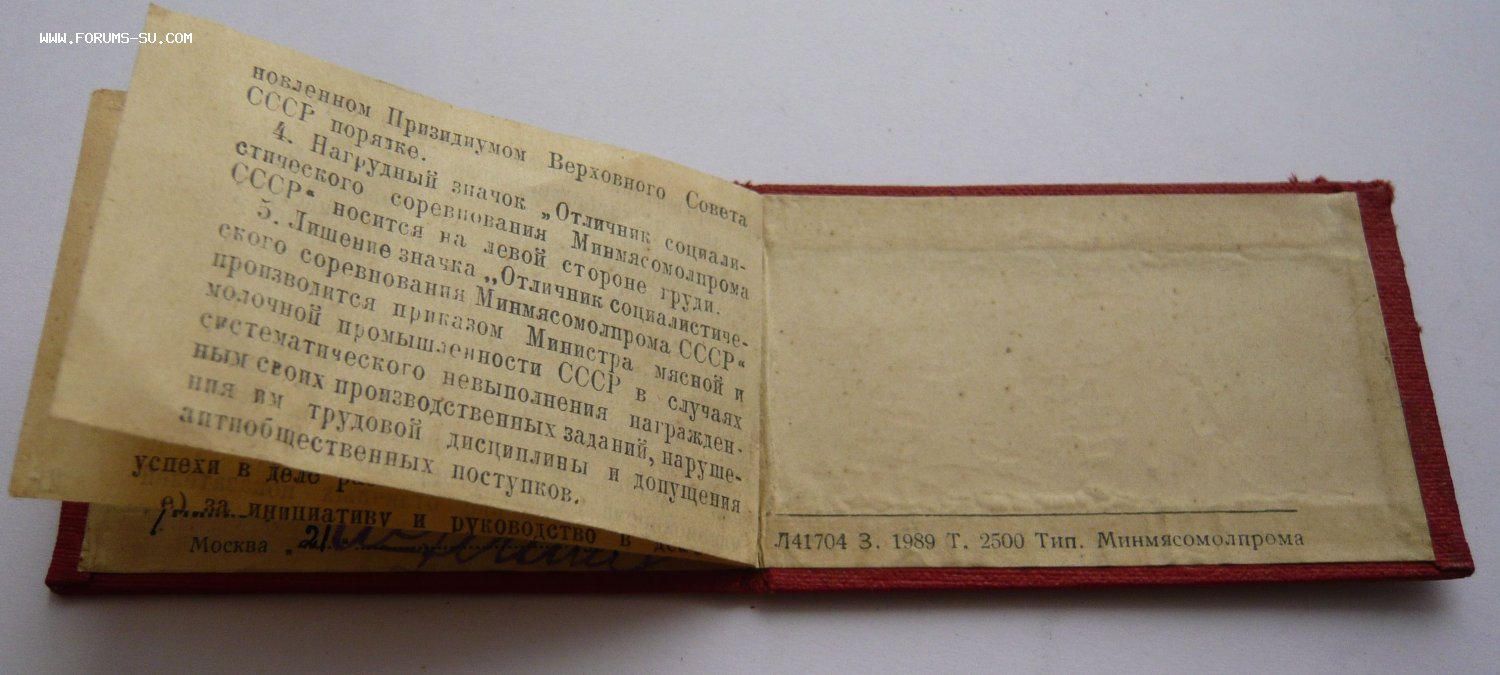 www.forums-su.com
новленном Призидиумом Верховного Совета
СССР порядке.
4. Нагрудный значок „Отличник социали-
стического соревнования Минмясомолпрома
СССР“ носится на левой стороне груди.
5. Лишение значка „Отличник социалистиче-
ского соревнования Минмясомолпрома СССР“
производится приказом Министра мясной и
молочной промышленности СССР в случаях
систематического невыполнения награжден-
ным своих производственных заданий, наруше-
ния им трудовой дисциплины и допущения
антиобщественных поступков.
успехи в дело
е) за инициативу и руководство в
Москва „21
Л41704 З. 1989 Т. 2500 Тип. Минмясомолпрома